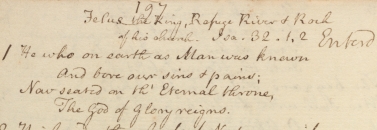 197
Jesus the King, Refuge River & Rock
of his church. Isa. 32. 1, 2 Enterd
1 He who on earth as Man was known
And bore our sins & pains;
Now seated on th' Eternal throne,
The God of Glory reigns.